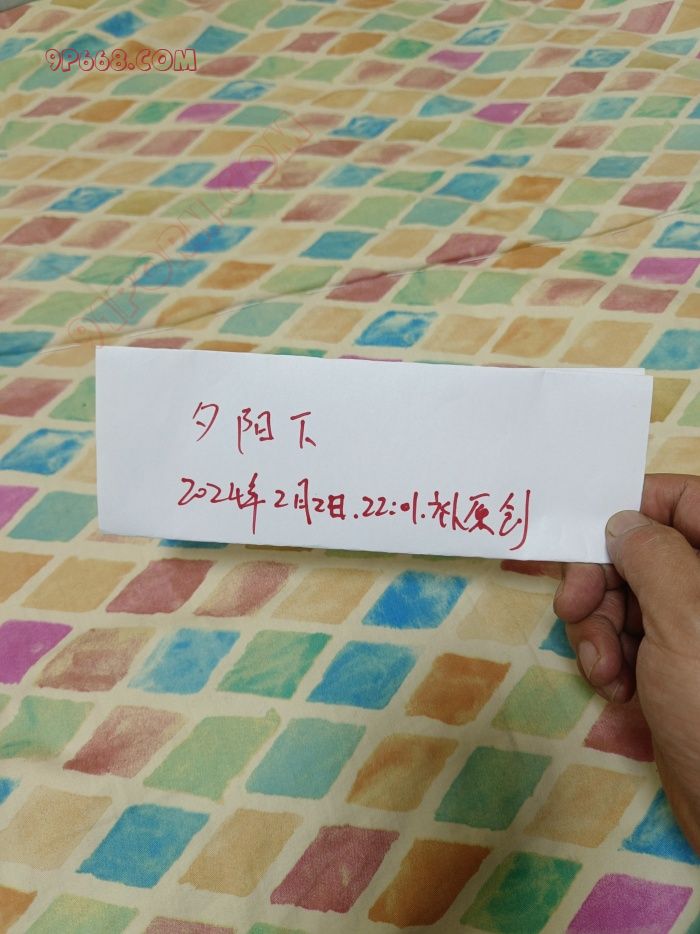 9P668.COM
91PORN.COM
夕阳下
2024年2月2日.22:01.原创